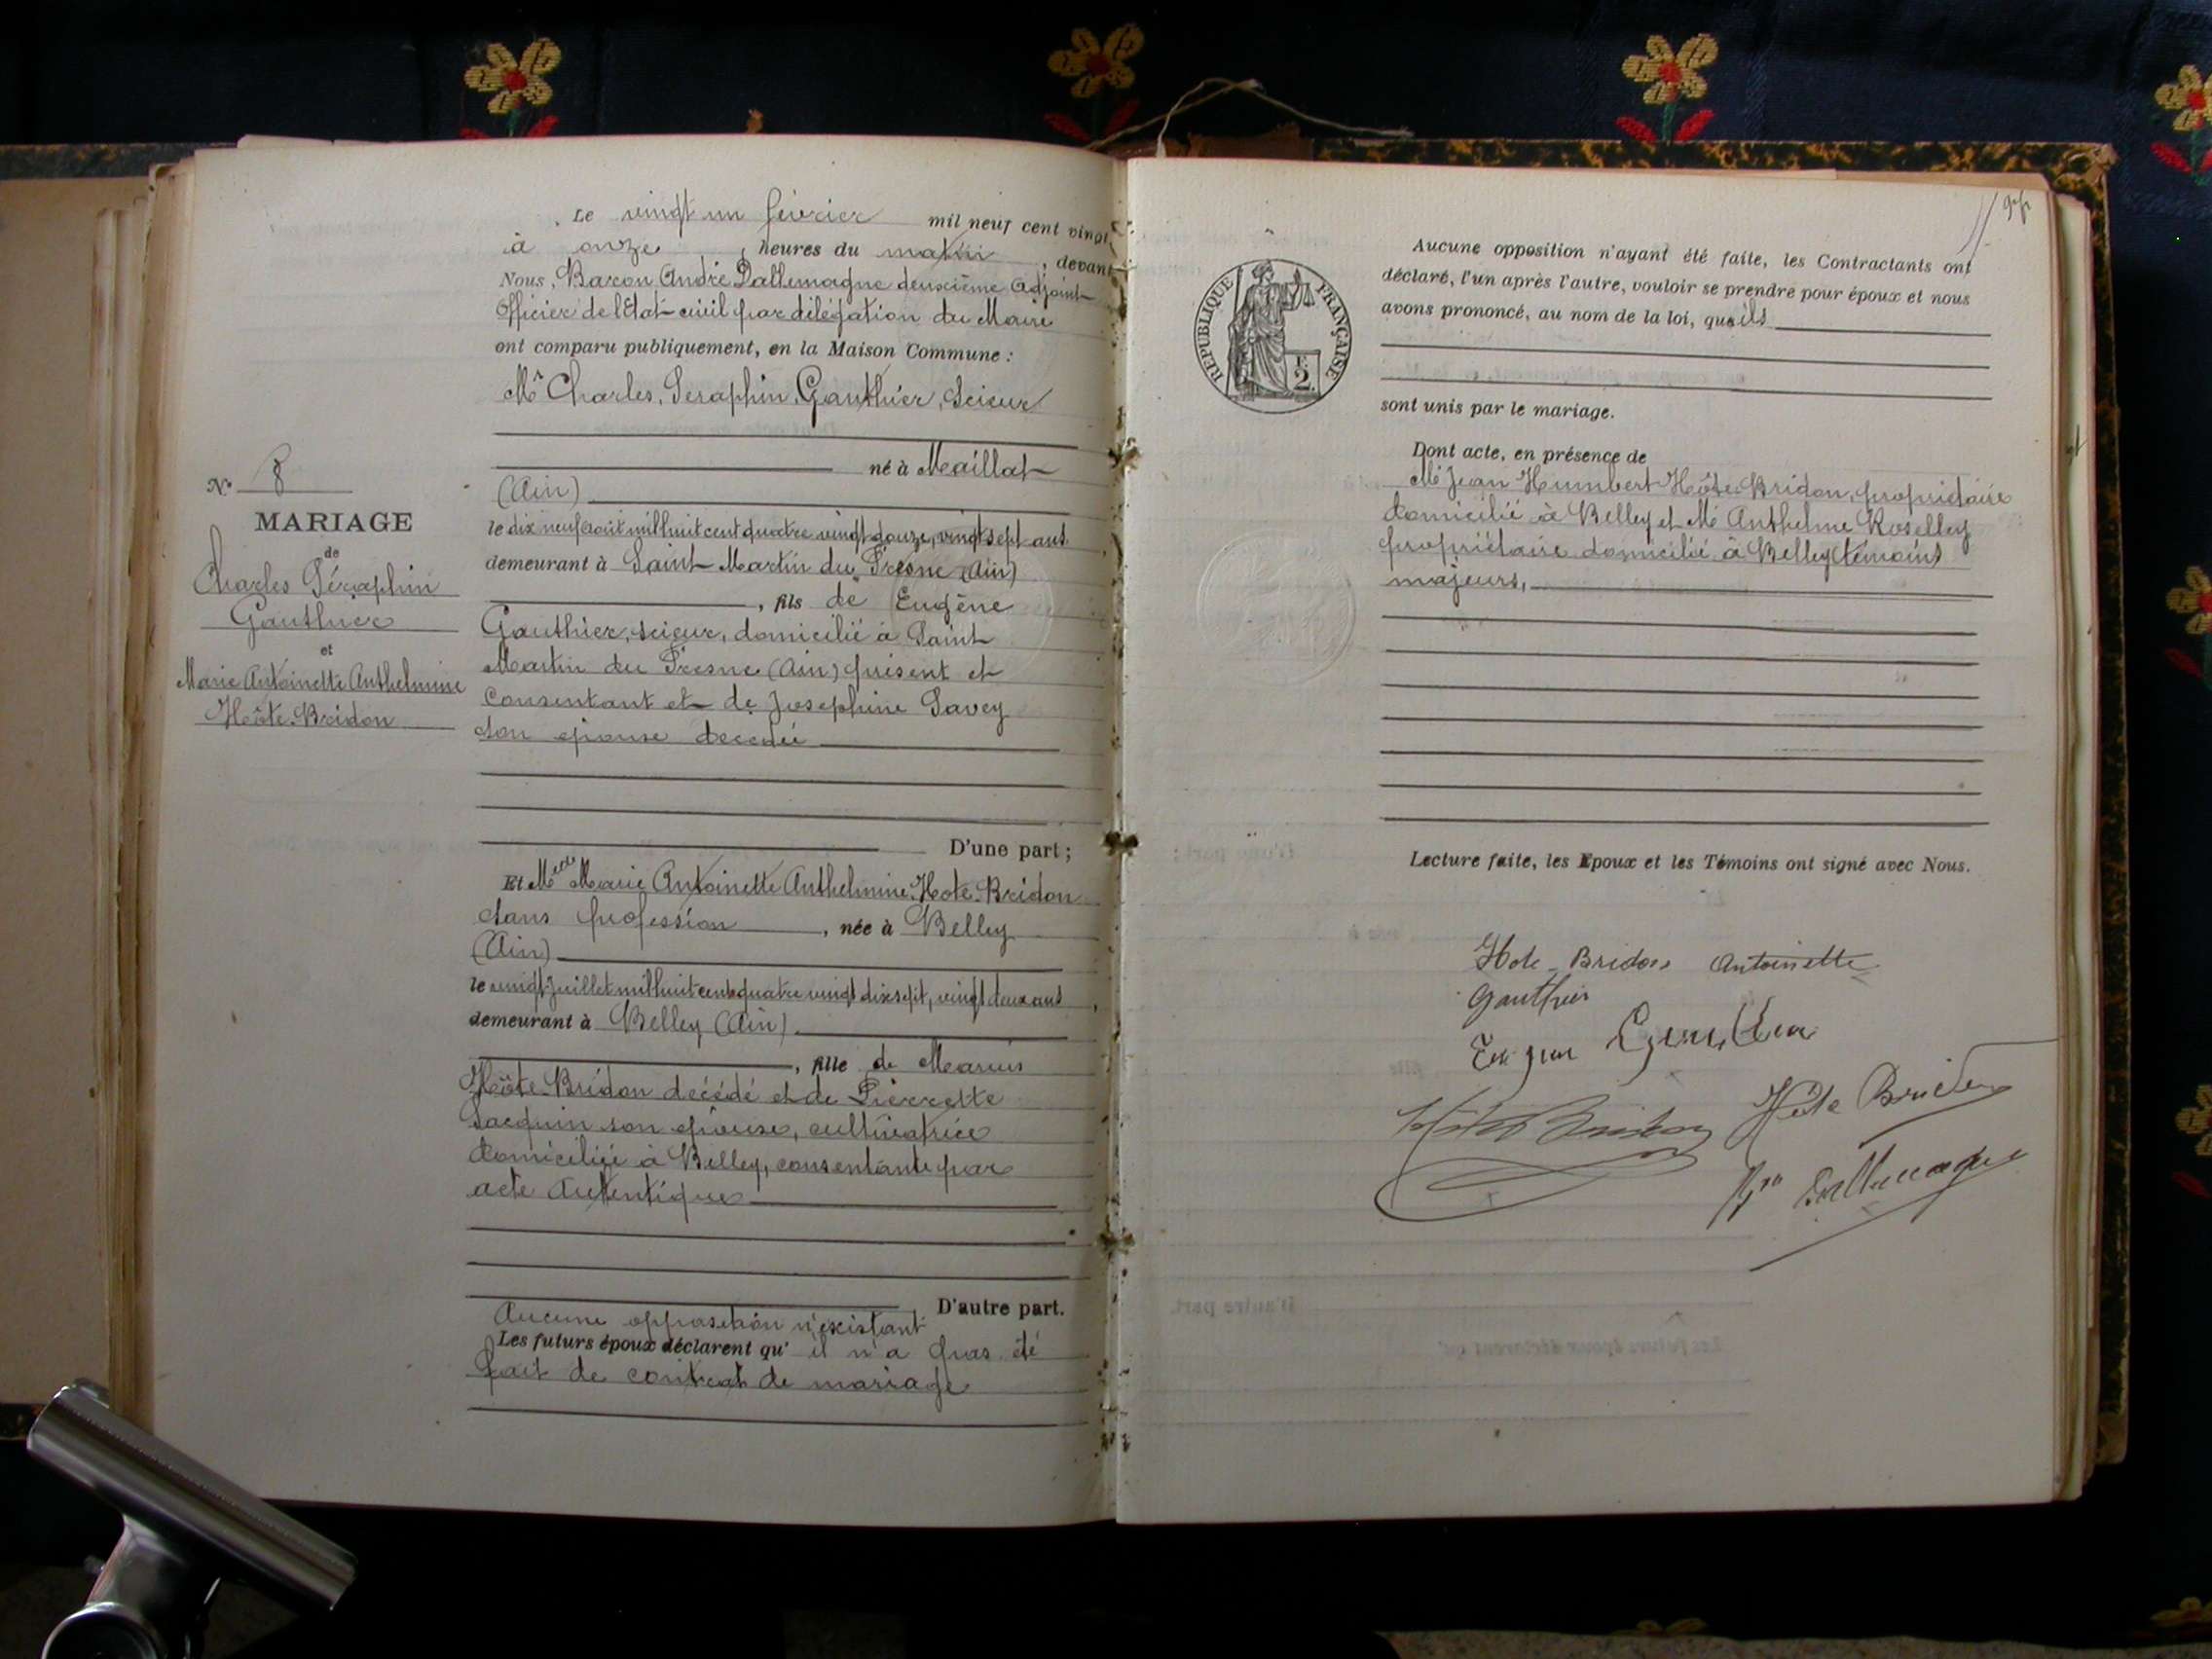 Le vingt un février mil neuf cent vingt,
à onze heures du matin, devant
Nous, Baron André Dallemagne deuxième Adjoint
Officier de l'Etat-civil par délégation du Maire
ont comparu publiquement, en la Maison Commune :
Mr Charles, Seraphin, Gauthier, Scieur
né à Maillat
(Ain)
le dix neuf août mil huit cent quatre vingt douze, vingt sept ans
demeurant à Saint-Martin du Fresne (Ain)
, fils de Eugène
Gauthier, scieur, domicilié à Saint
Martin du Fresne (Ain) présent et
consentant et de Josephine Savey
son épouse décédée
D'une part ;
N° 8
MARIAGE
de
Charles Séraphin
Gauthier
et
Marie Antoinette Anthelmine
Hôte-Bridon
Et Melle Marie Antoinette Anthelmine Hote-Bridon
sans profession, née à Belley
(Ain)
le vingt juillet mil huit cent quatre vingt dix sept, vingt deux ans,
demeurant à Belley (Ain)
, fille de Marius
Hôte-Bridon décédé et de Pierrette
Jacquin son épouse, cultivatrice
domiciliée à Belley, consentante par
acte autentique
D'autre part.
Aucune opposition n'existant
Les futurs époux déclarent qu' il n'a pas été
fait de contrat de mariage
RÉPUBLIQUE FRANÇAISE
2
Aucune opposition n'ayant été faite, les Contractants ont
déclaré, l'un après l'autre, vouloir se prendre pour époux et nous
avons prononcé, au nom de la loi, qu'ils
sont unis par le mariage.
Dont acte, en présence de
Mr Jean Humbert Hôte-Bridon, propriétaire
domicilié à Belley et Mr Anthelme Roselley
propriétaire domicilié à Belley témoins
majeurs,
Lecture faite, les Epoux et les Témoins ont signé avec Nous.
Hote-Bridon Antoinette
Gauthier
Hôte Bridon
Bon Dallemagne